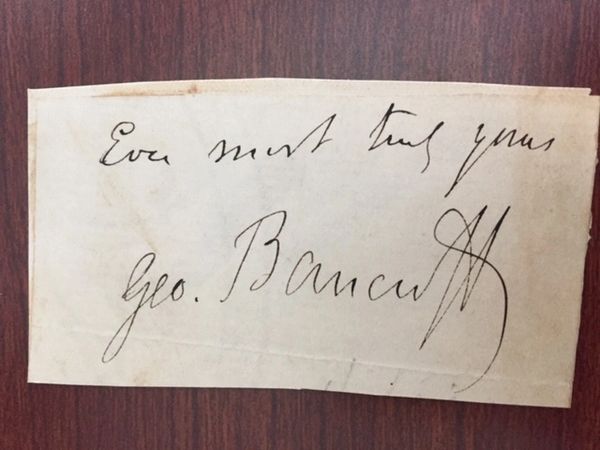 Ever most truly yours
Geo. Bancroft